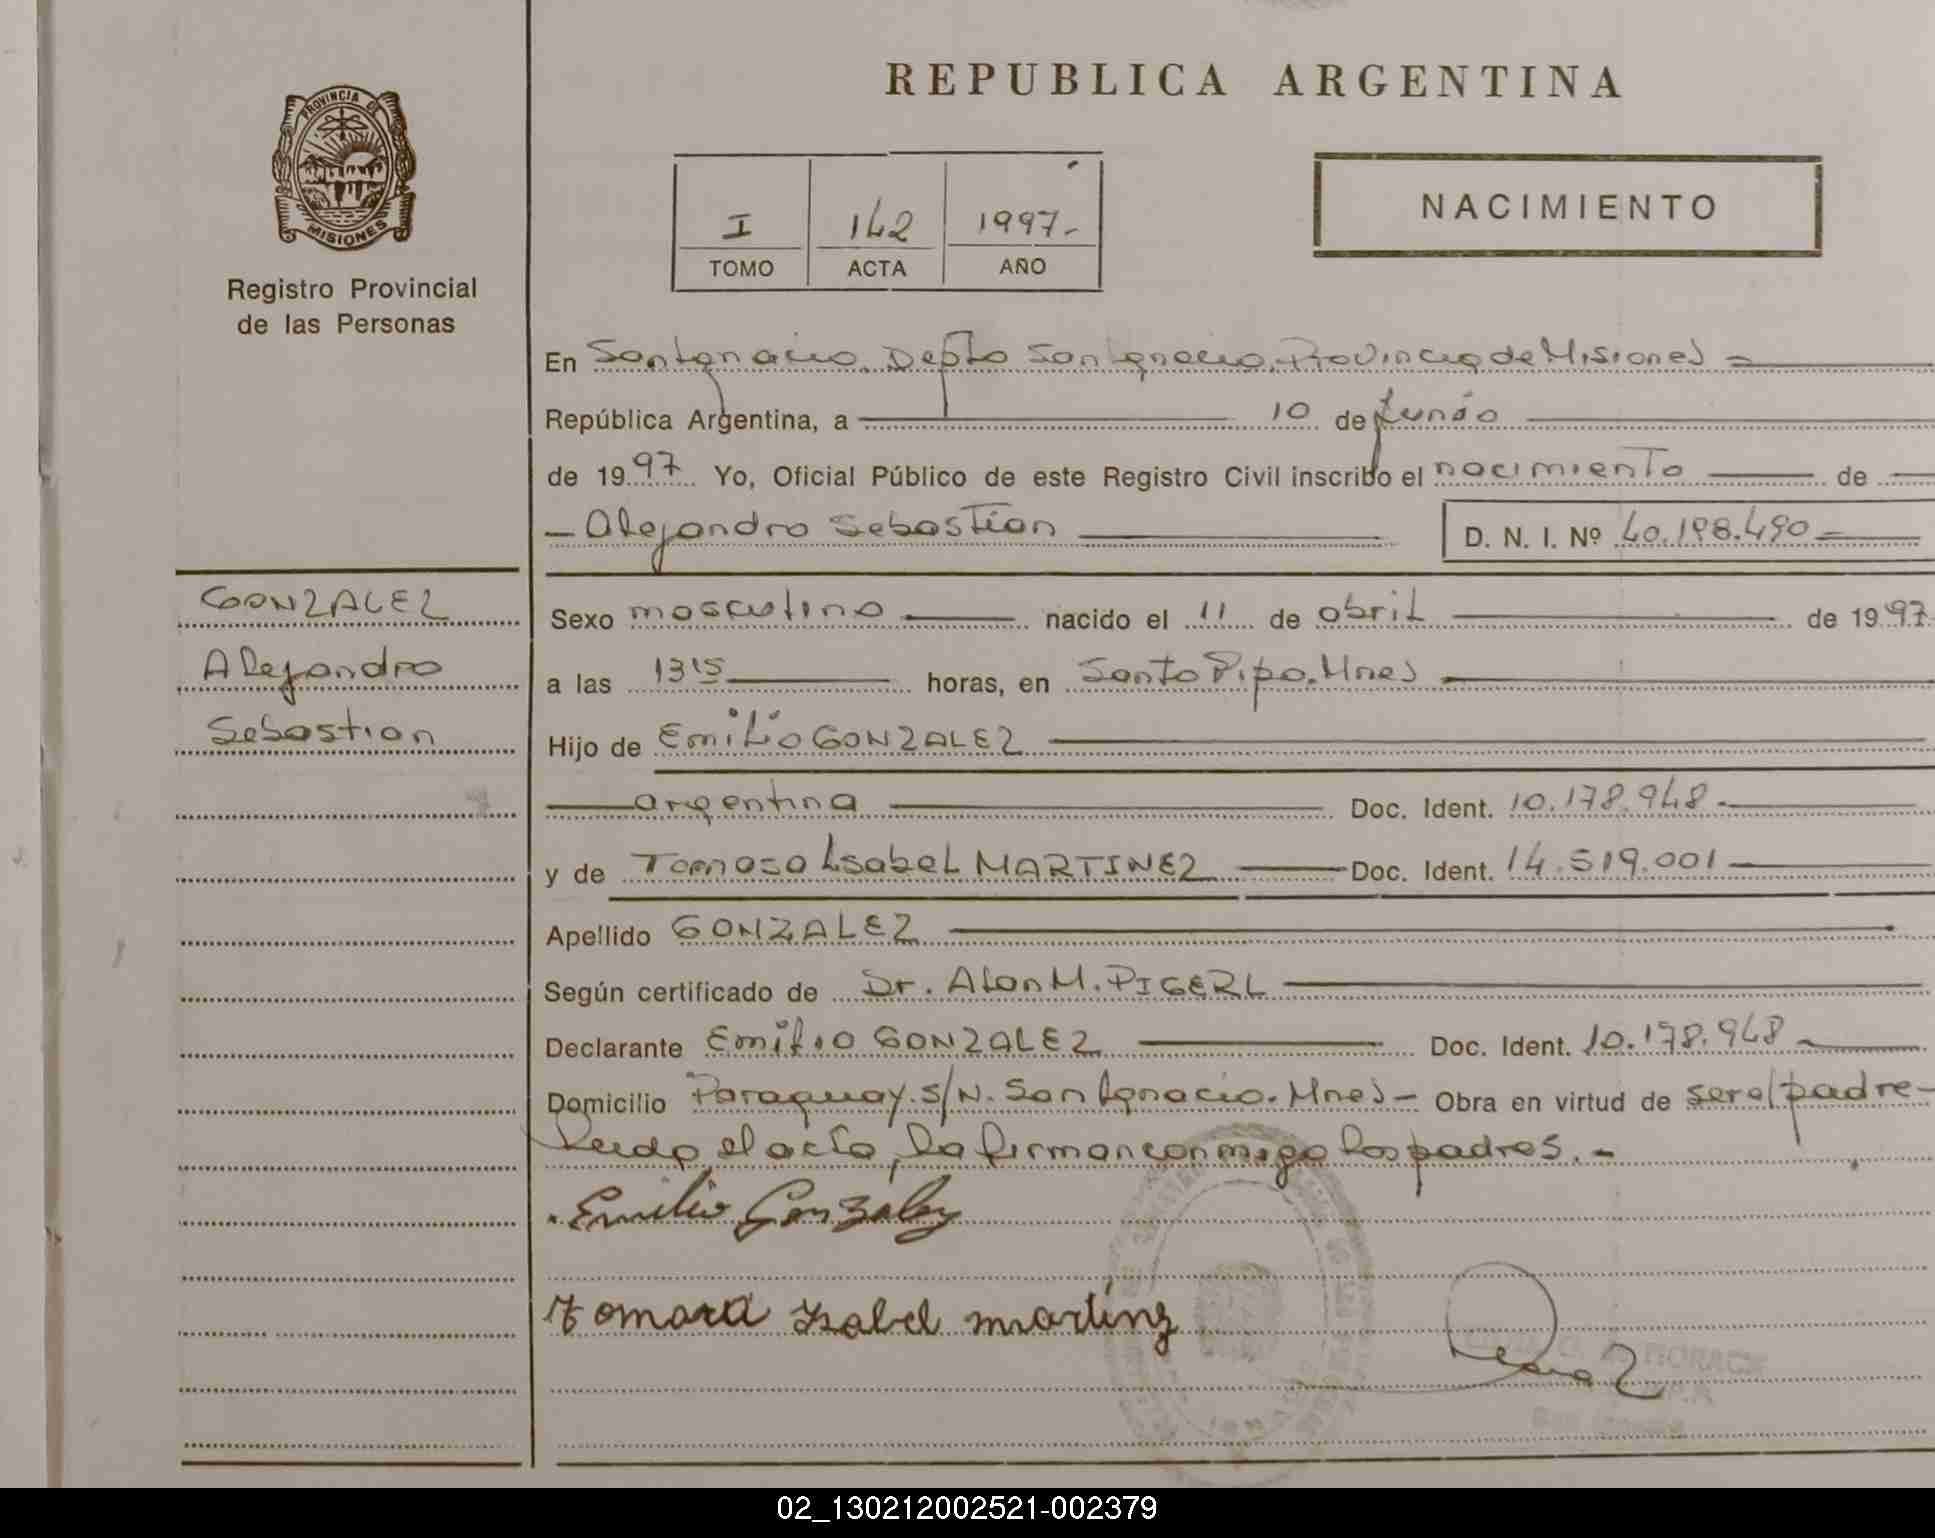 REPUBLICA ARGENTINA
PROVINCIA DE
MISIONES
Registro Provincial
de las Personas
I 142 1997.-
TOMO ACTA AÑO
NACIMIENTO
En San Ignacio, Depto San Ignacio, Provincia de Misiones -
República Argentina, a 10 de Junio
de 1997 Yo, Oficial Público de este Registro Civil inscribo el nacimiento de
- Alejandro Sebastian
D. N. I. Nº 40.198.490
GONZALEZ
Alejandro
Sebastian
Sexo masculino nacido el 11 de abril de 1997
a las 13 15 horas, en Santo Pipo. Mnes
Hijo de Emilio GONZALEZ
argentina Doc. Ident. 10.178.948.
y de Tomasa Isabel MARTINEZ Doc. Ident. 14.519.001
Apellido GONZALEZ
Según certificado de Dr. Alan M. PIGERL
Declarante Emilio GONZALEZ Doc. Ident. 10.178.948
Domicilio Paraguay. s/N. San Ignacio. Mnes - Obra en virtud de ser el padre-
Leido el acta, la firman conmigo los padres. -
Emilio Gonzalez
tomasa Isabel martinz
02_130212002521-002379